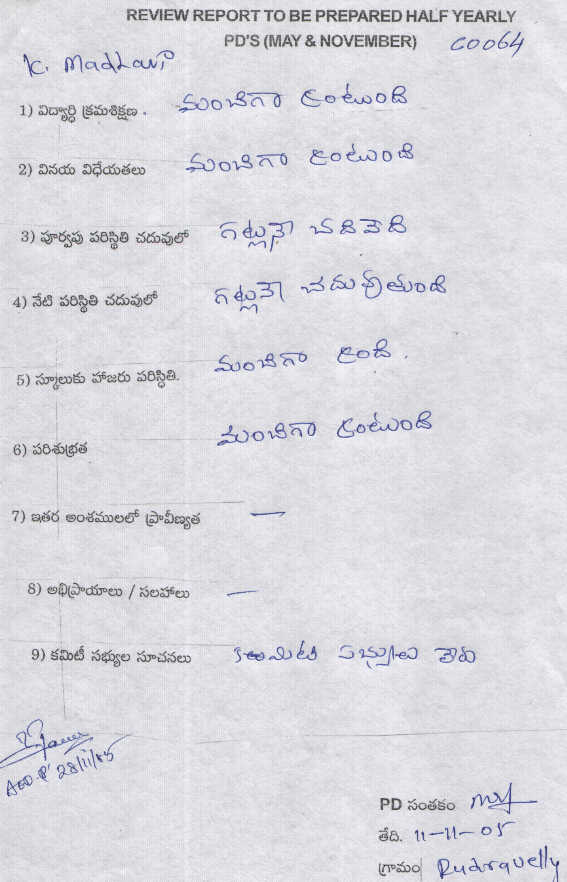 REVIEW REPORT TO BE PREPARED HALF YEARLY
PD'S (MAY & NOVEMBER) C0064
K. Madhavi
1) విద్యార్థి క్రమశిక్షణ . మంచిగా ఉంటుంది
2) వినయ విధేయతలు మంచిగా ఉంటుంది
3) పూర్వపు పరిస్థితి చదువులో గట్లనే చదివేది
4) నేటి పరిస్థితి చదువులో గట్లనే చదువుతుంది
5) స్కూలుకు హాజరు పరిస్థితి. మంచిగా ఉంది .
6) పరిశుభ్రత మంచిగా ఉంటుంది
7) ఇతర అంశములలో ప్రావీణ్యత —
8) అభిప్రాయాలు / సలహాలు —
9) కమిటీ సభ్యుల సూచనలు కమిటి సభ్యులు లేరు
28/11/05
PD సంతకం
తేది. 11-11-05
గ్రామం Rudravelly